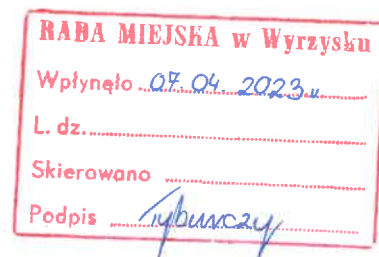 RADA MIEJSKA w Wyrzysku
Wpłynęło 07.04.2023 r.
L. dz.
Skierowano
Podpis Tyburczy